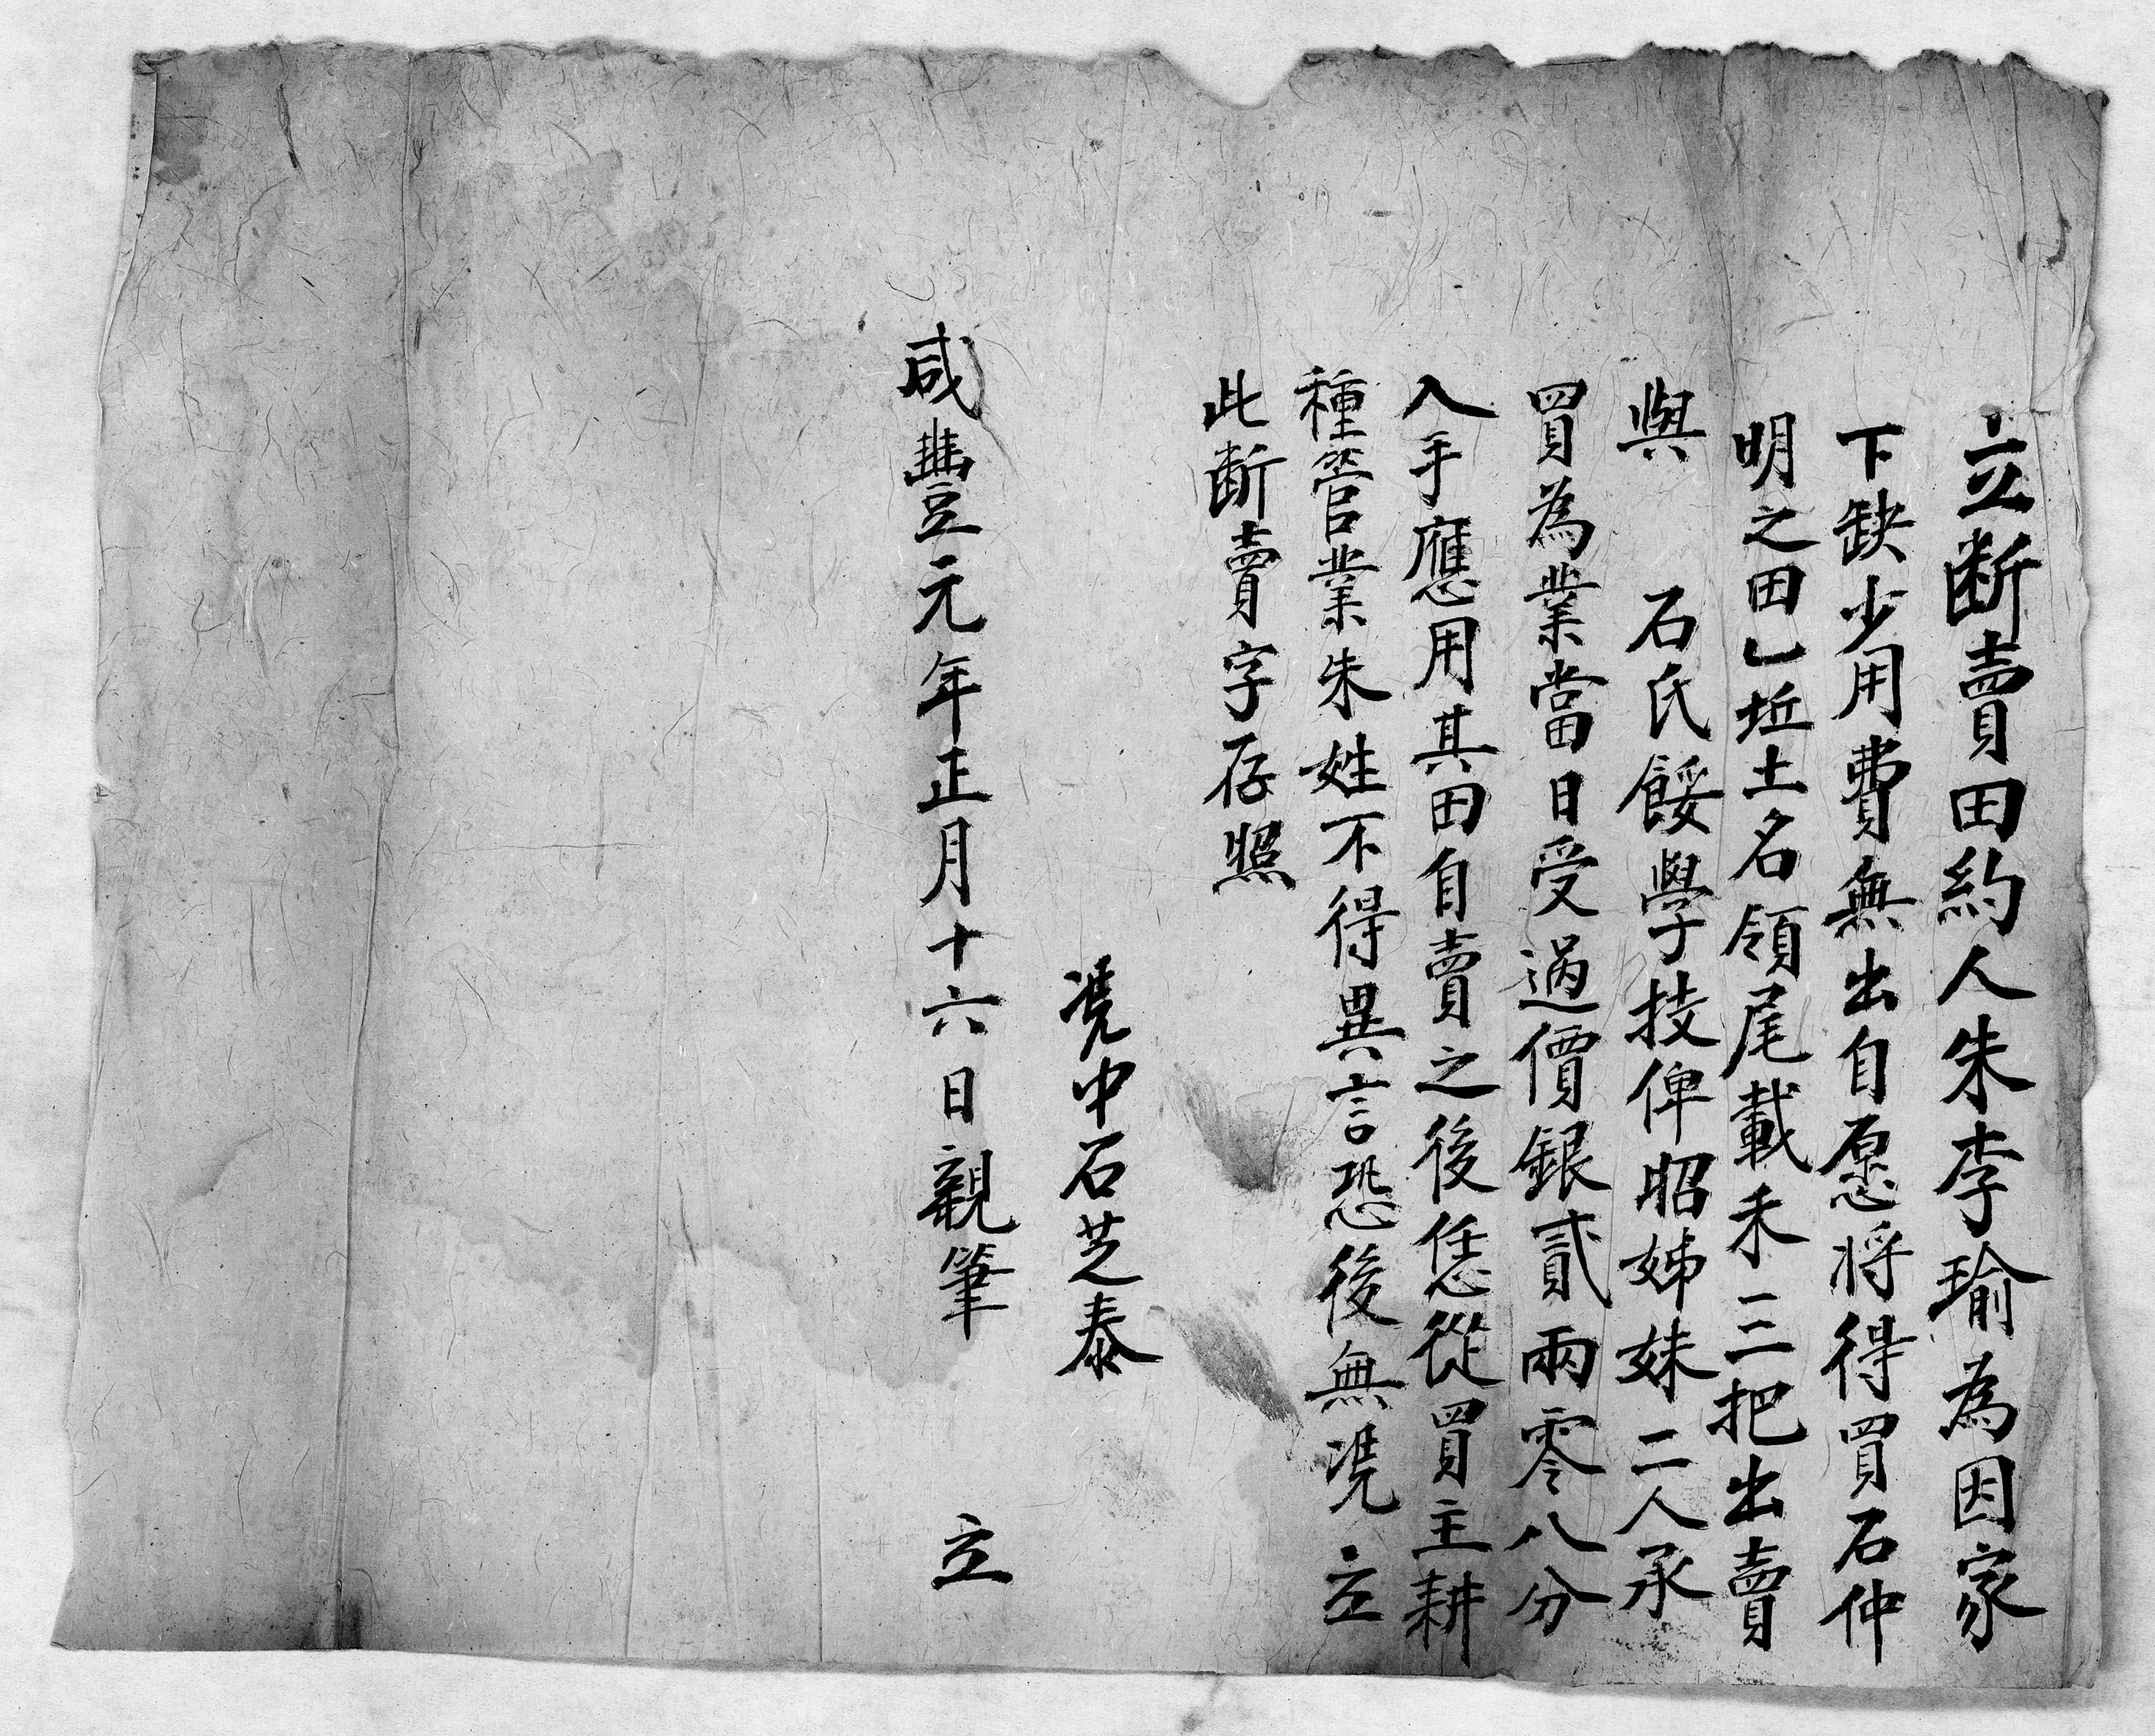 立断賣田約人朱李瑜為因家
下缺少用費無出自愿將得買石仲
明之田乚坵土名領尾載禾一三把出賣
與 石氏餒學技俾昭姊妹二人承
買為業當日受過價銀貳兩零八分
入手應用其田自賣之後恁從買主耕
種管業朱姓不得異言恐後無凴立
此断賣字存照
凴中石芝泰
咸豐元年正月十六日親筆 立